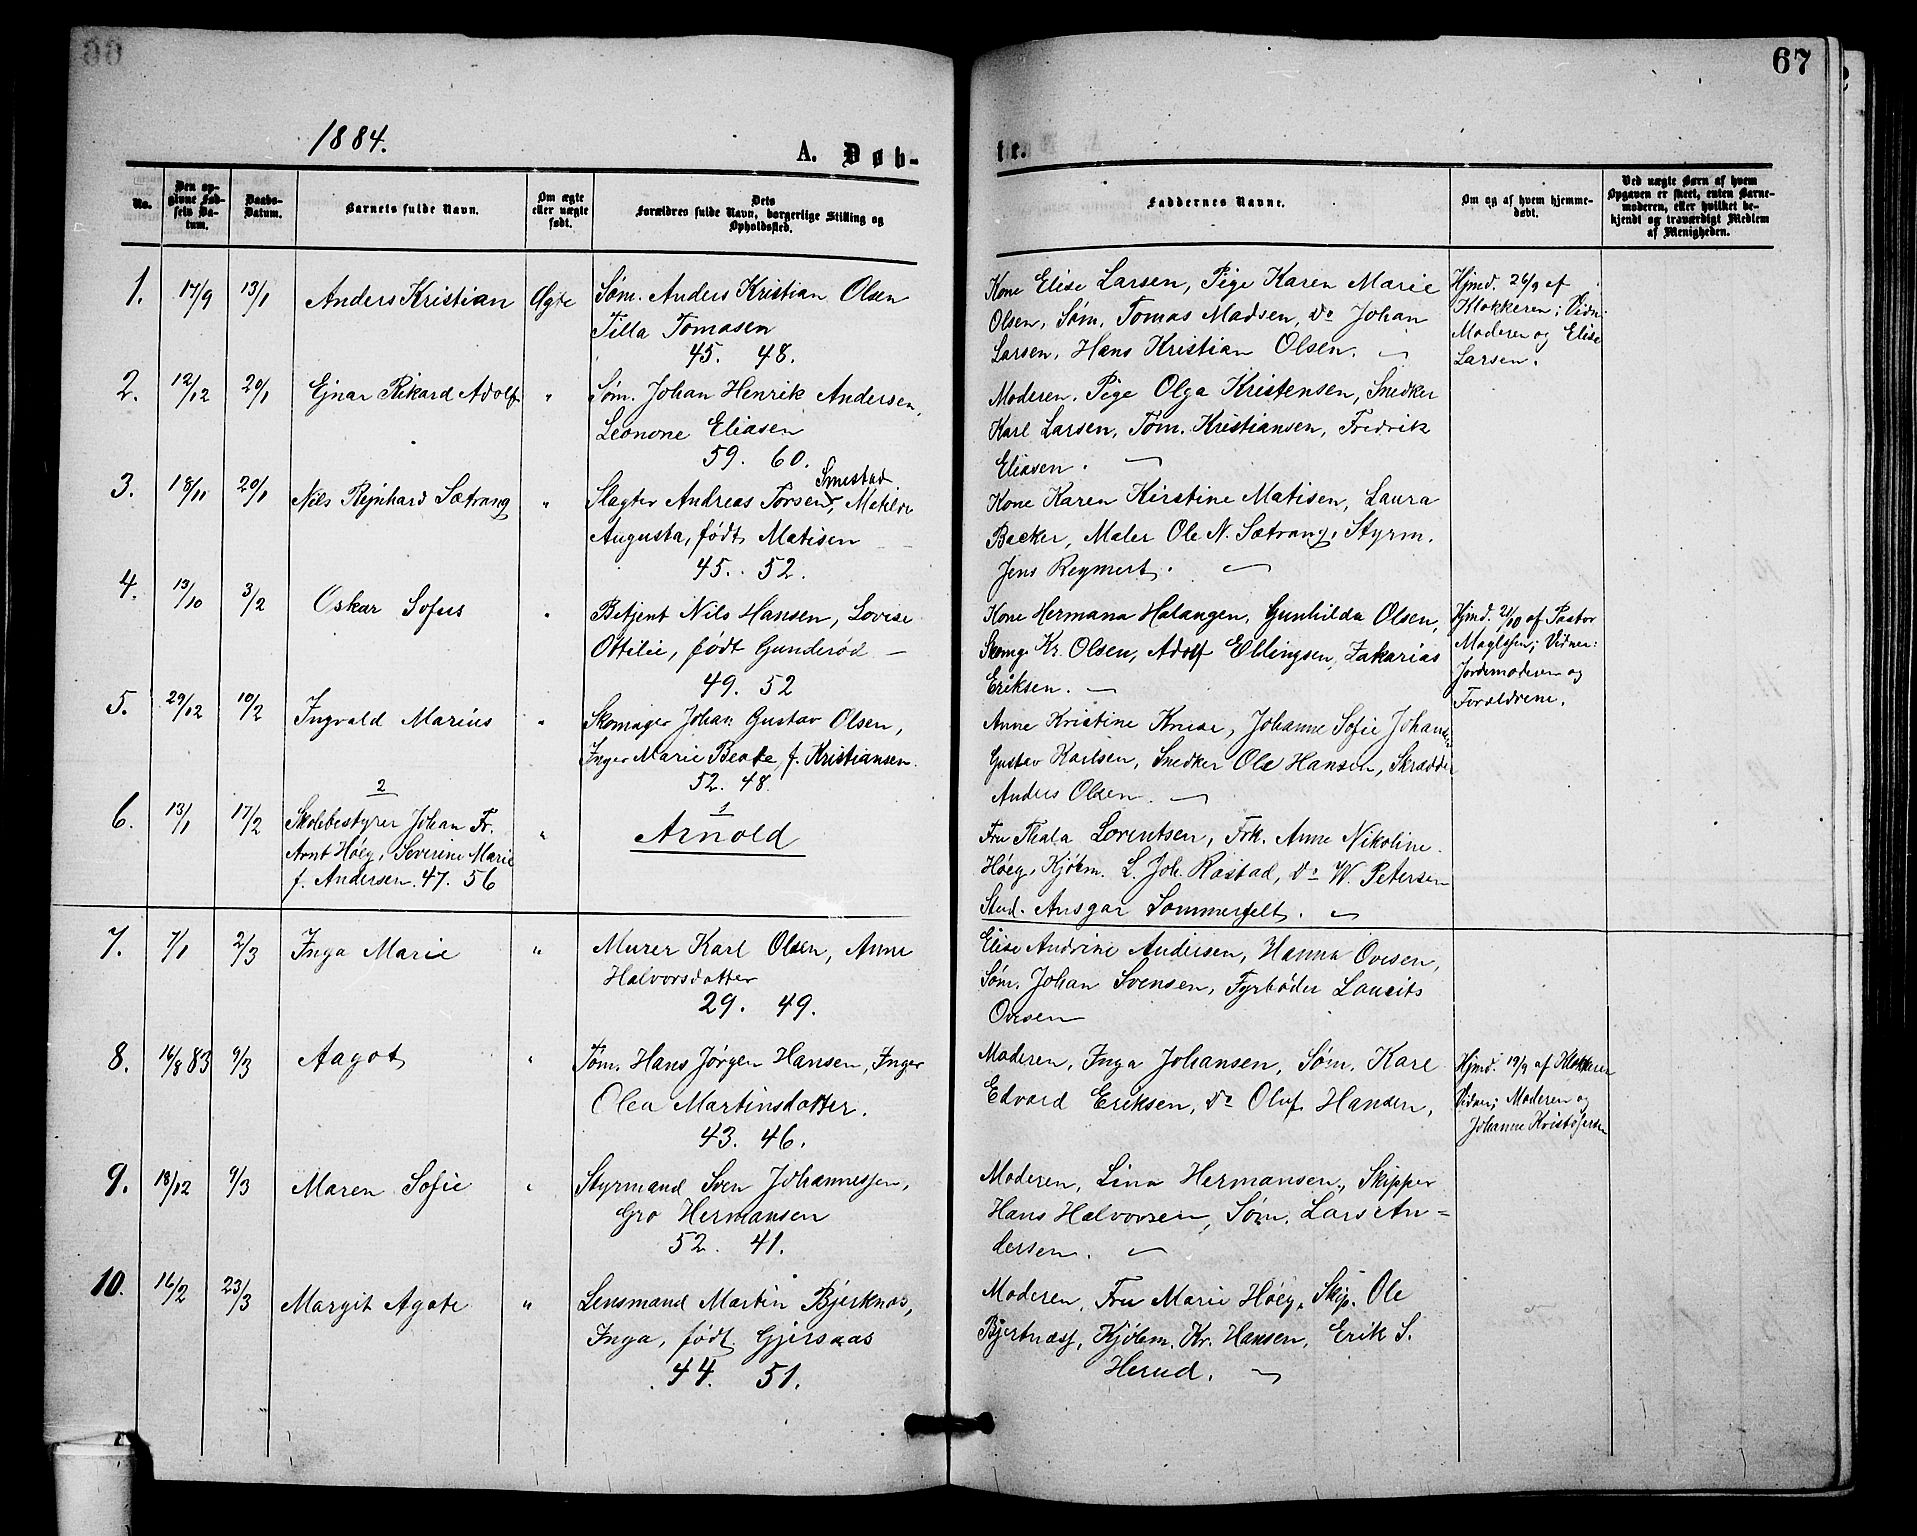 67
1884.
A. Døb-
te.
No.
Den op-
givne Fød-
sels Da-
tum.
Daabs-
Datum.
Barnets fulde Navn.
Om ægte
eller uægte
født.
Dets
Forældres fulde Navn, borgerlige Stilling og
Opholdssted.
Faddernes Navne.
Om og af hvem hjemme-
døbt.
Ved uægte Børn af hvem
Opgaven er skeet, enten Barne-
moderen, eller hvilket be-
kjendt og troværdigt Medlem
af Menigheden.
1. 17/9 13/1 Anders Kristian Ægte
Søm. Anders Kristian Olsen
Tilla Tomasen
45. 48.
Kone Elise Larsen, Pige Karen Marie
Olsen, Søm. Tomas Madsen, Do Johan
Larsen, Hans Kristian Olsen.
Hjmd. 26/9 af
Klokkeren; Vidn:
Moderen og Elise
Larsen.
2. 12/12 20/1 Ejnar Rikard Adolf "
Søm. Johan Henrik Andersen,
Leonone Eliasen
59. 60.
Moderen, Pige Olga Kristensen, Snedker
Karl Larsen, Tøm. Kristiansen, Fredrik
Eliasen.
3. 18/11 20/1 Nils Rejnhard Sætrang "
Smestad
Slagter Andreas Torsen, Matilde
Augusta, født Matisen
45. 52.
Kone Karen Kirstine Matisen, Laura
Becker, Maler Ole N. Sætrang, Styrm.
Jens Reymert.
4. 13/10 3/2 Oskar Sofus "
Betjent Nils Hansen, Lovise
Ottilie, født Gunderød
49. 52
Kone Hermana Halangen, Gunhilda Olsen,
Skomg. Kr. Olsen, Adolf Ellingsen, Zakarias
Eriksen.
Hjmd. 21/10 af Pastor
Magelsen; Vidner:
Jordemoderen og
Forældrene.
5. 29/12 10/2 Ingvald Marius "
Skomager Johan Gustav Olsen,
Inger Marie Beate, f. Kristiansen.
52. 48.
Anne Kristine Kruse, Johanne Sofie Johansen
Gustav Karlsen, Snedker Ole Hansen, Skrædder
Anders Olsen.
6. 13/1 17/2
2
Skolebestyrer Johan Fr.
Arnt Høeg, Severine Marie
f. Andersen. 47. 56
"
1
Arnold
Fru Thala Lorentsen, Frk. Anne Nikoline
Høeg, Kjøbm. L. Joh. Røstad, Do W. Petersen
Stud. Ansgar Sommerfelt.
7. 7/1 2/3 Inga Marie "
Murer Karl Olsen, Anne
Halvorsdatter
29. 49.
Elise Andrine Andersen, Hanna Ovesen,
Søm. Johan Svensen, Fyrbøder Laurits
Ovesen
8. 16/8 83 9/3 Aagot "
Tøm. Hans Jørgen Hansen, Inger
Olea Martinsdatter.
43. 46.
Moderen, Inga Johansen, Søm. Karl
Edvard Eriksen, Do Oluf Hansen,
Hjmd. 19/9 af Klokkeren
Vidner; Moderen og
Johanne Kristofersen
9. 18/12 9/3 Maren Sofie "
Styrmand Sven Johannessen,
Gro Hermansen
52. 41.
Moderen, Lina Hermansen, Skipper
Hans Halvorsen, Søm. Lars An=
dersen.
10. 16/2 23/3 Margit Agate "
Lensmand Martin Bjerknæs,
Inga, født Gjersaas
44. 51.
Moderen, Fru Marie Høeg, Skip. Ole
Bjerknæss, Kjøbm. Kr. Hansen, Erik S.
Herud.